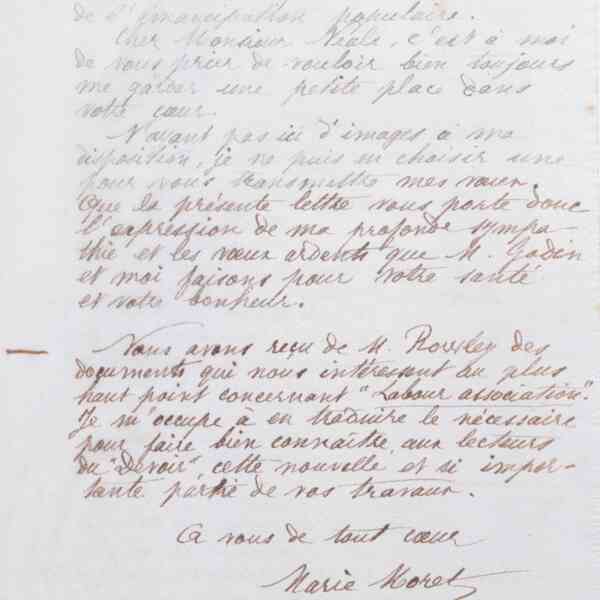 de l'émancipation populaire.
Cher Monsieur Neale, c'est à moi
de vous prier de vouloir bien toujours
me garder une petite place dans
votre cœur.
N'ayant pas ici d'images à ma
disposition, je ne puis en choisir une
pour vous transmettre mes vœux.
Que la présente lettre vous porte donc
l'expression de ma profonde sympa-
thie et les vœux ardents que M. Godin
et moi faisons pour votre santé
et votre bonheur.
Nous avons reçu de M. Rowley des
documents qui nous intéressent au plus
haut point concernant "Labour association".
Je m'occupe à en traduire le nécessaire
pour faire bien connaître aux lecteurs
du "Devoir", cette nouvelle et si impor-
tante partie de vos travaux.
A vous de tout cœur
Marie Moret